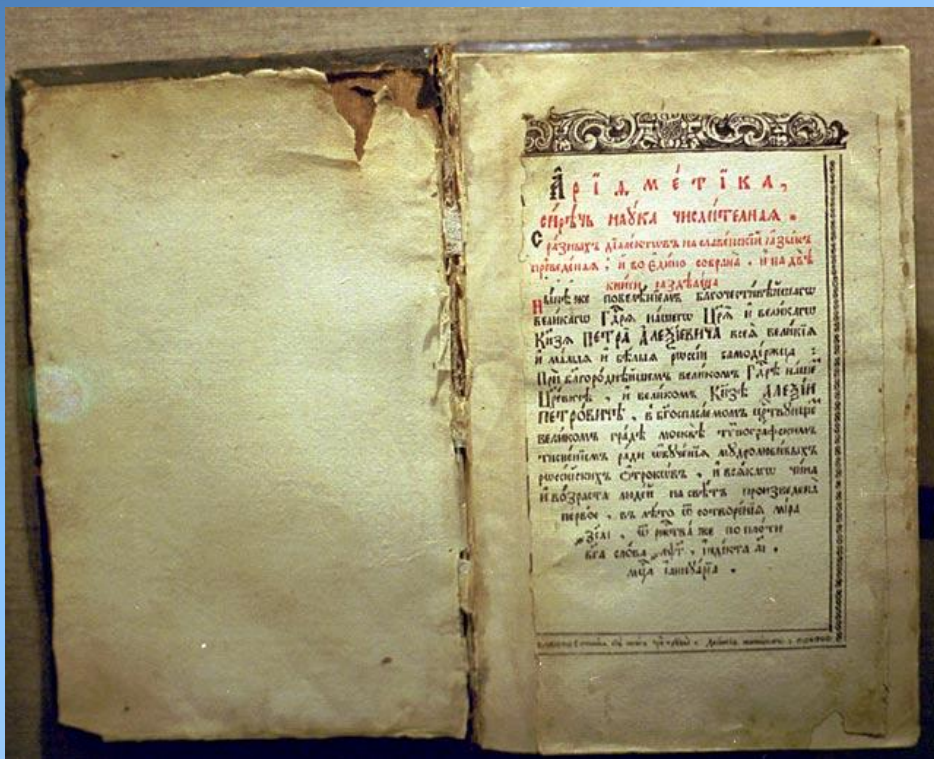 А҆рїѳме́тїка,
си́рѣчь наꙋ́ка числи́телнаѧ.
С ра́зныхъ дїале́ктѡвъ на славе́нскїй ꙗ҆зы́къ
преведе́наѧ, и҆ во є҆ди́но собрана̀, и҆ на двѣ̀
кни́ги раздѣле́на
Ны́нѣ же повелѣ́нїемъ благочести́вѣйшагѡ
вели́кагѡ гдⷭ҇рѧ на́шегѡ цр҃ѧ̀ и҆ вели́кагѡ
кн҃зѧ ПЕТРА̀ А҆ЛЕѮІ́ЕВИЧА всеѧ̀ вели́кїѧ
и҆ ма́лыѧ и҆ бѣ́лыѧ рѡссі́и самоде́ржца:
Прѝ благоро́днѣйшемъ вели́комъ гдⷭ҇рѣ на́шемъ
цр҃е́вичѣ, и҆ вели́комъ кн҃зѣ А҆ЛЕѮІ́И
ПЕТРО́ВИЧѢ, в бг҃оспаса́емомъ црⷭ҇твꙋющемъ
вели́комъ гра́дѣ москвѣ̀ тѷпогра́фскимъ
тисне́нїемъ ра́ди ѡ҆бꙋче́нїѧ мꙋдролюби́выхъ
рѡссі́йскихъ ѻ҆́трокѡвъ, и҆ всѧ́кагѡ чи́на
и҆ во́зраста люде́й на свѣ́тъ произведена̀
пе́рвое, въ лѣ́то ѿ сотворе́нїѧ мі́ра
҂зс҃аі, ѿ ржⷭ҇тва́ же по пло́ти
бг҃а сло́ва ҂аѱ҃г, і҆ндї́кта а҃і.
мцⷭ҇а і҆аннꙋа́рїа.